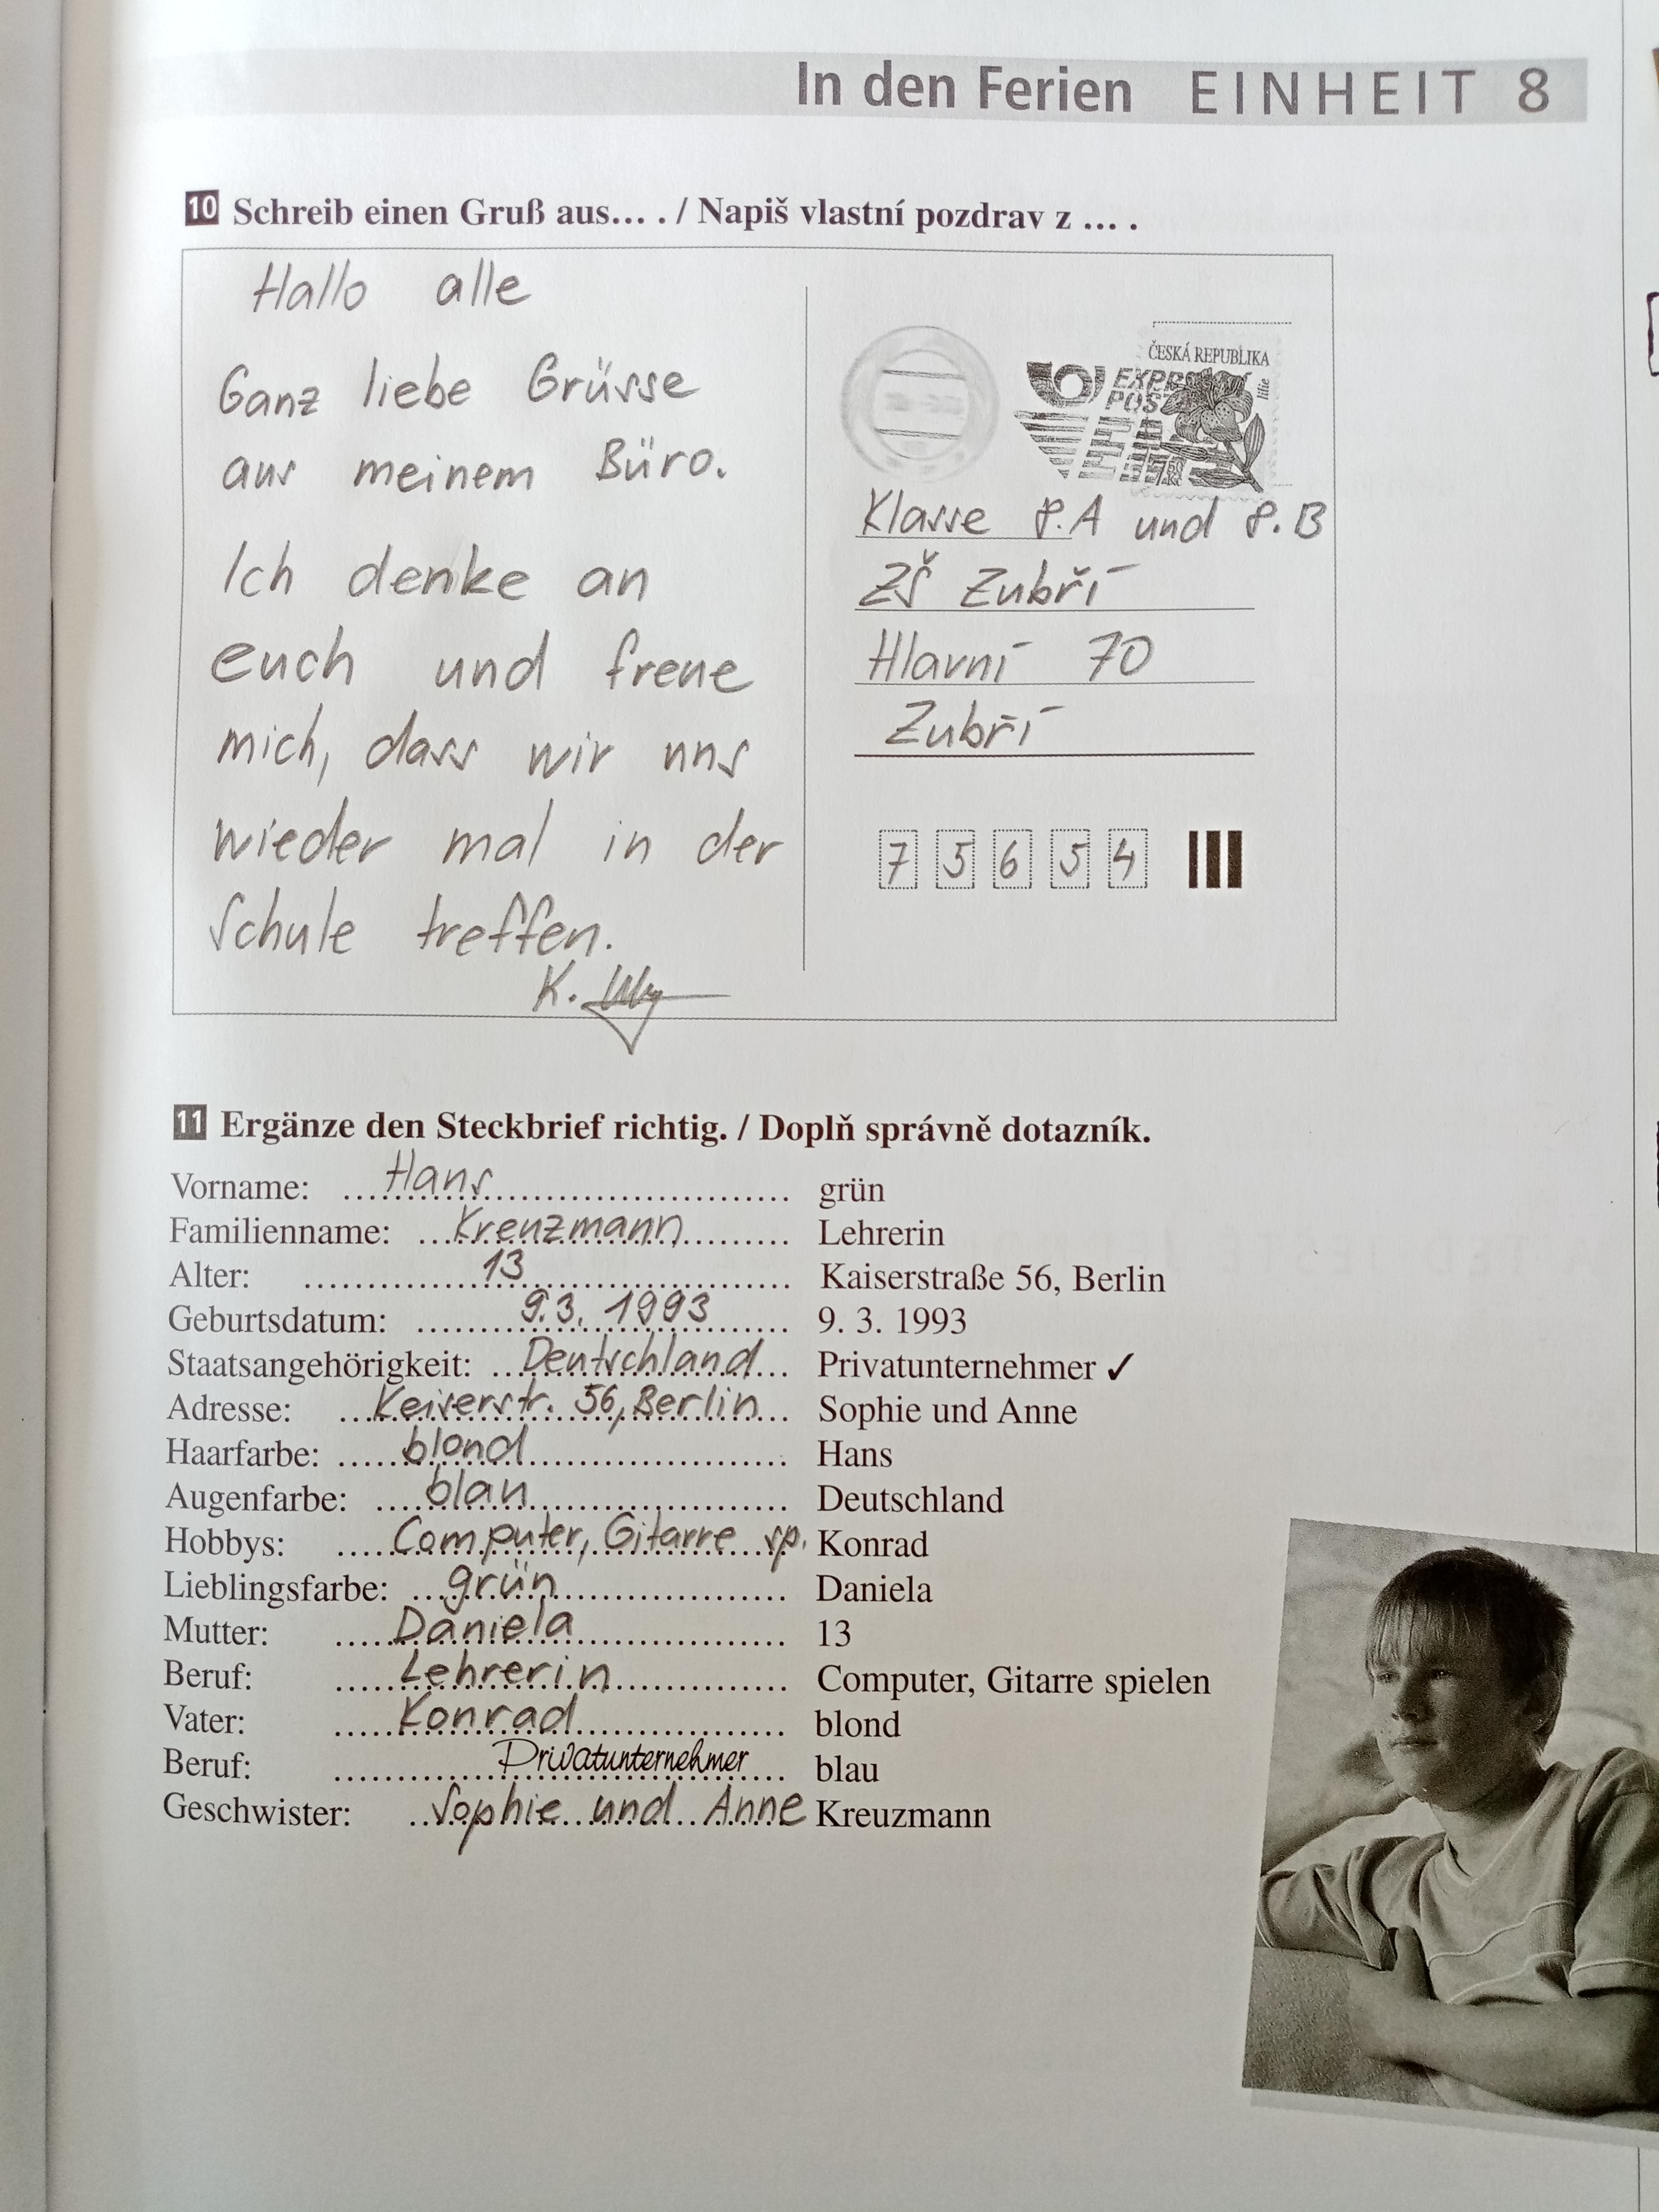 In den Ferien EINHEIT 8
10 Schreib einen Gruß aus... . / Napiš vlastní pozdrav z ... .
Hallo alle
Ganz liebe Grüsse
aus meinem Büro.
Ich denke an
euch und freue
mich, dass wir uns
wieder mal in der
Schule treffen.
K.
ČESKÁ REPUBLIKA
lilie
Klasse 8.A und 8.B
ZŠ Zubří
Hlavní 70
Zubří
7 5 6 5 4
11 Ergänze den Steckbrief richtig. / Doplň správně dotazník.
Vorname: Hans grün
Familienname: Kreuzmann Lehrerin
Alter: 13 Kaiserstraße 56, Berlin
Geburtsdatum: 9.3. 1993 9. 3. 1993
Staatsangehörigkeit: Deutschland Privatunternehmer ✓
Adresse: Keiserstr. 56, Berlin Sophie und Anne
Haarfarbe: blond Hans
Augenfarbe: blau Deutschland
Hobbys: Computer, Gitarre sp. Konrad
Lieblingsfarbe: grün Daniela
Mutter: Daniela 13
Beruf: Lehrerin Computer, Gitarre spielen
Vater: Konrad blond
Beruf: Privatunternehmer blau
Geschwister: Sophie und Anne Kreuzmann